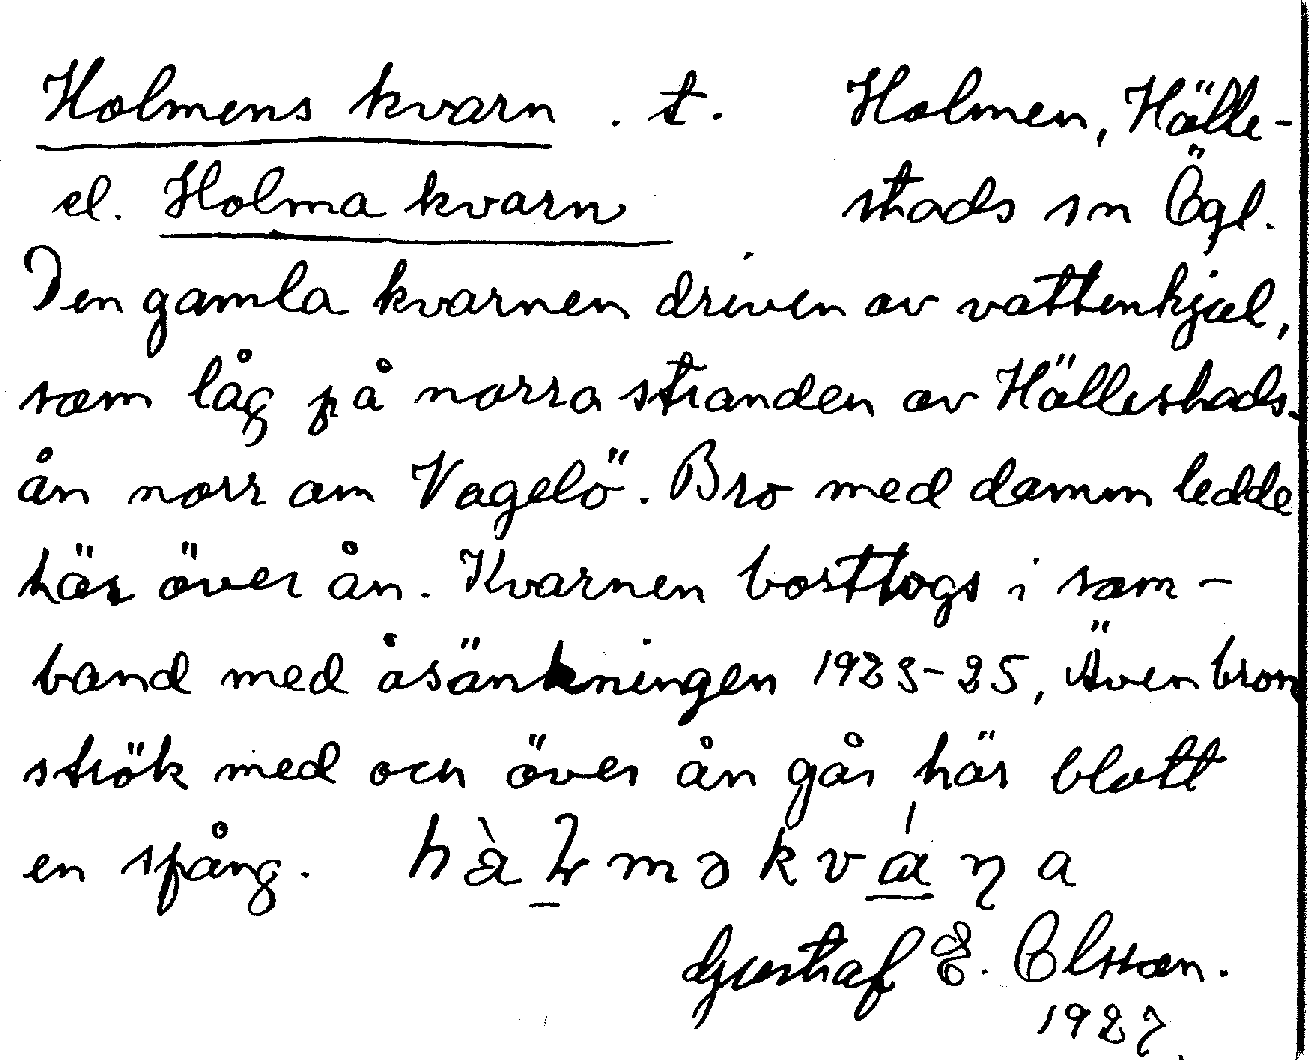 Holmens kvarn . t. Holmen, Hälle-
el. Holma kvarn stads sn Ögl.
Den gamla kvarnen driven av vattenhjul,
som låg på norra stranden av Hällestads-
ån norr om Vagelö. Bro med damm ledde
här över ån. Kvarnen borttogs i sam-
band med åsänkningen 1923-25, Även bron
strök med och över ån går här blott
en spång.
Gustaf E. Olsson.
1927